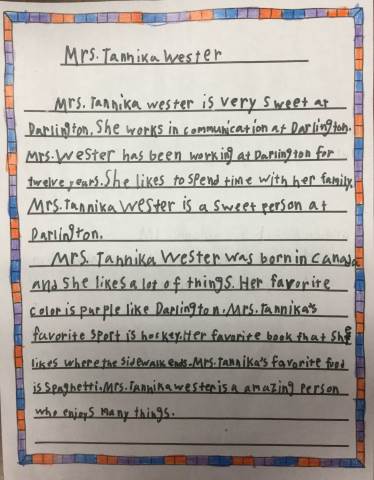 Mrs. Tannika Wester
Mrs. Tannika wester is very sweet at
Darlington. She works in communication at Darlington.
Mrs. Wester has been working at Darlington for
twelve years. She likes to spend time with her family.
Mrs. Tannika Wester is a sweet person at
Darlington.
Mrs. Tannika Wester was born in Canada
and she likes a lot of things. Her favorite
color is purple like Darlington. Mrs. Tannika's
favorite sport is hockey. Her favorite book that She
likes where the sidewalk ends. Mrs. Tannika's favorite food
is spaghetti. Mrs. Tannika wester is a amazing person
who enjoys many things.